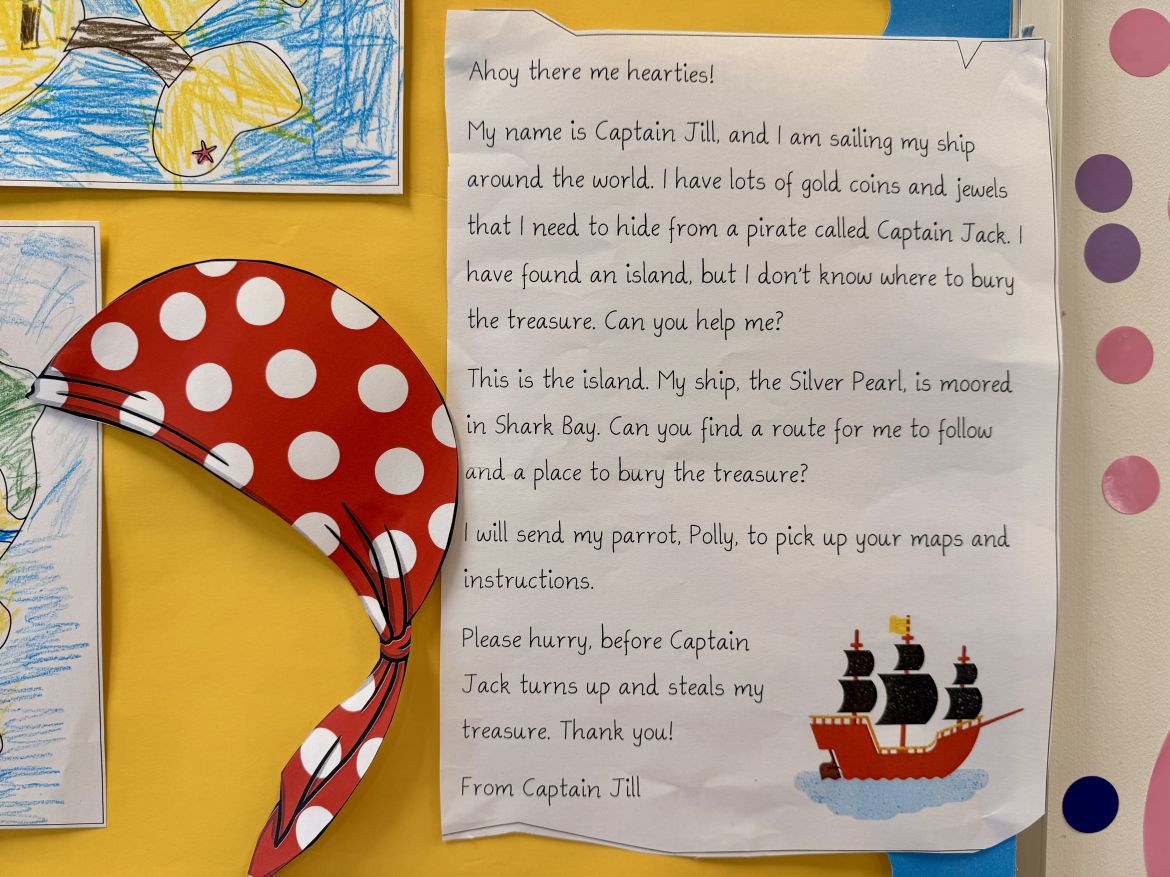 Ahoy there me hearties!
My name is Captain Jill, and I am sailing my ship
around the world. I have lots of gold coins and jewels
that I need to hide from a pirate called Captain Jack. I
have found an island, but I don't know where to bury
the treasure. Can you help me?
This is the island. My ship, the Silver Pearl, is moored
in Shark Bay. Can you find a route for me to follow
and a place to bury the treasure?
I will send my parrot, Polly, to pick up your maps and
instructions.
Please hurry, before Captain
Jack turns up and steals my
treasure. Thank you!
From Captain Jill